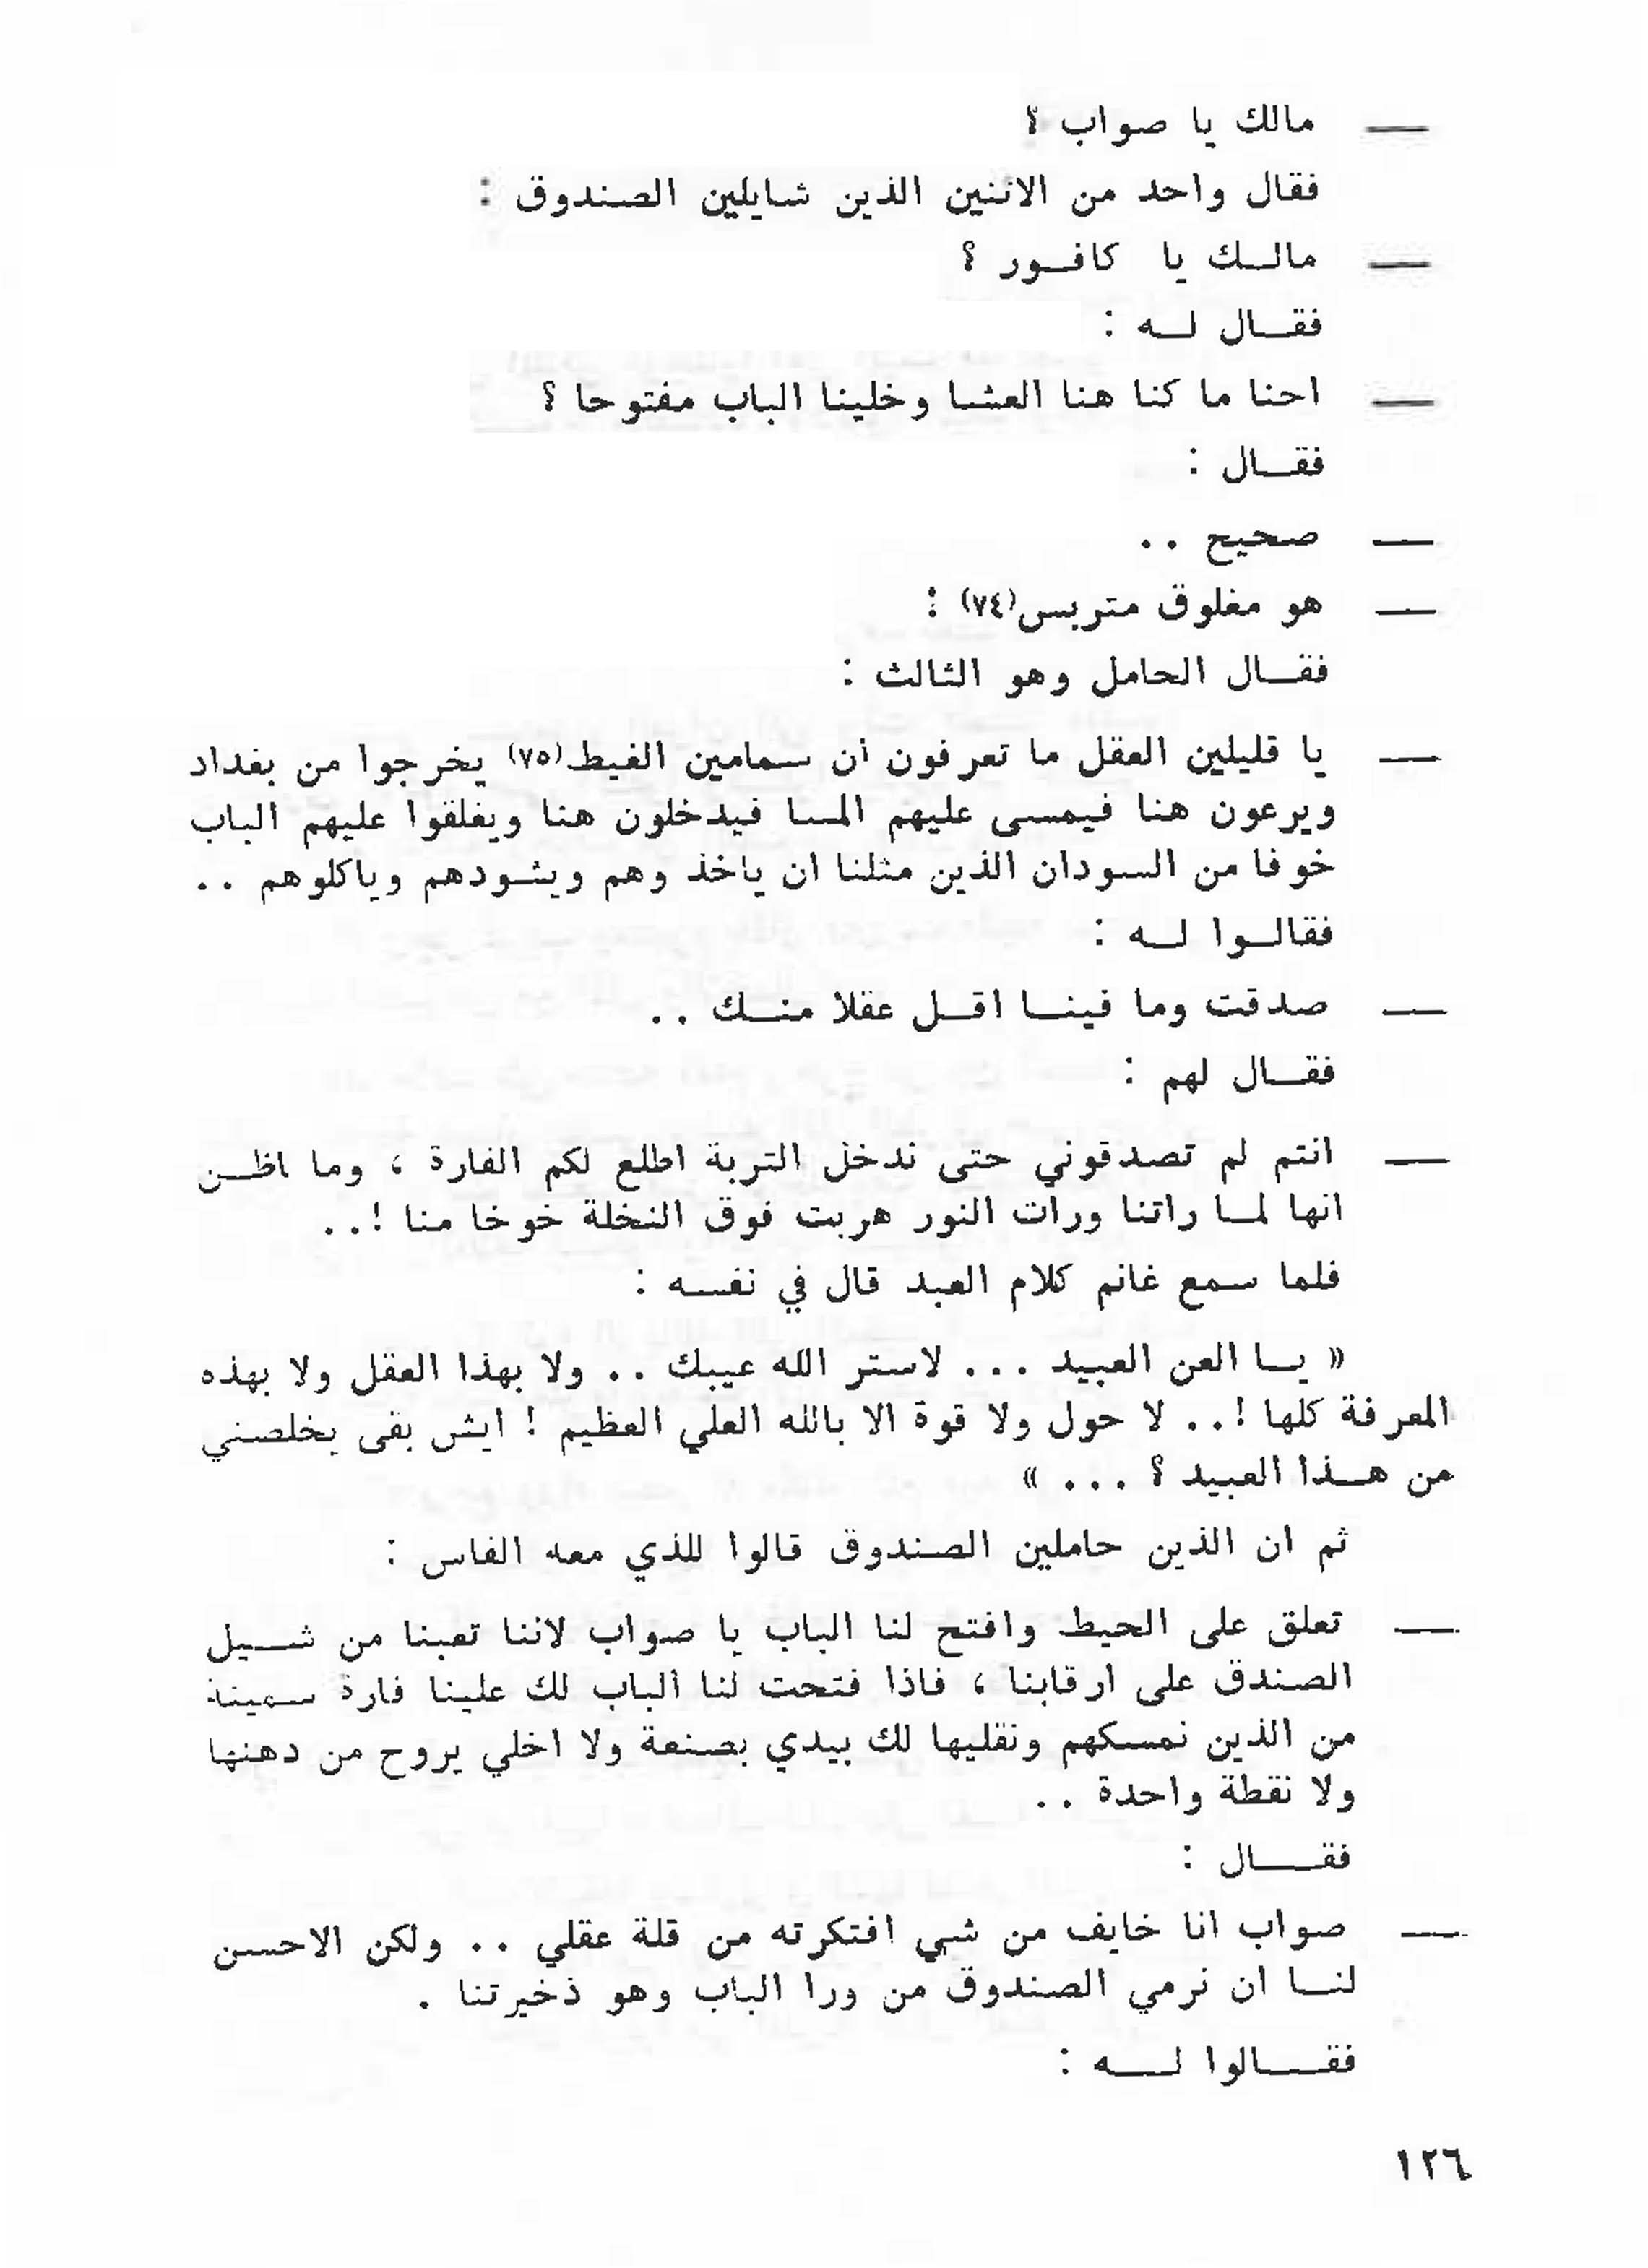 — مالك يا صواب ؟
فقال واحد من الاثنين الذين شايلين الصندوق :
— مالك يا كافور ؟
فقال له :
— احنا ما كنا هنا العشا وخلينا الباب مفتوحا ؟
فقال :
— صحيح ..
— هو مغلوق متربس(٧٤) :
فقال الحامل وهو الثالث :
— يا قليلين العقل ما تعرفون أن سمامين الغيط(٧٥) يخرجوا من بغداد
ويرعون هنا فيمسى عليهم المسا فيدخلون هنا ويغلقوا عليهم الباب
خوفا من السودان الذين مثلنا ان ياخذ وهم ويشودهم وياكلوهم ..
فقالوا له :
— صدقت وما فينا اقل عقلا منك ..
فقال لهم :
— انتم لم تصدقوني حتى ندخل التربة اطلع لكم الفارة ، وما اظن
انها لما راتنا ورات النور هربت فوق النخلة خوخا منا !..
فلما سمع غانم كلام العبد قال في نفسه :
« يا العن العبيد ... لاستر الله عيبك .. ولا بهذا العقل ولا بهذه
المعرفة كلها !.. لا حول ولا قوة الا بالله العلي العظيم ! ايش بقى يخلصني
من هذا العبيد ؟ ... »
ثم ان الذين حاملين الصندوق قالوا للذي معه الفاس :
— تعلق على الحيط وافتح لنا الباب يا صواب لاننا تعبنا من شيل
الصندق على ارقابنا ، فاذا فتحت لنا الباب لك علينا فارة سمينة
من الذين نمسكهم ونقليها لك بيدي بصنعة ولا اخلي يروح من دهنها
ولا نقطة واحدة ..
فقال :
— صواب انا خايف من شي افتكرته من قلة عقلي .. ولكن الاحسن
لنا ان نرمي الصندوق من ورا الباب وهو ذخيرتنا .
فقالوا له :
١٢٦